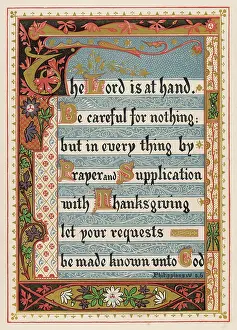 The Lord is at hand.
Be careful for nothing:
but in every thing by
Prayer and Supplication
with Thanksgiving
let your requests
be made known unto God